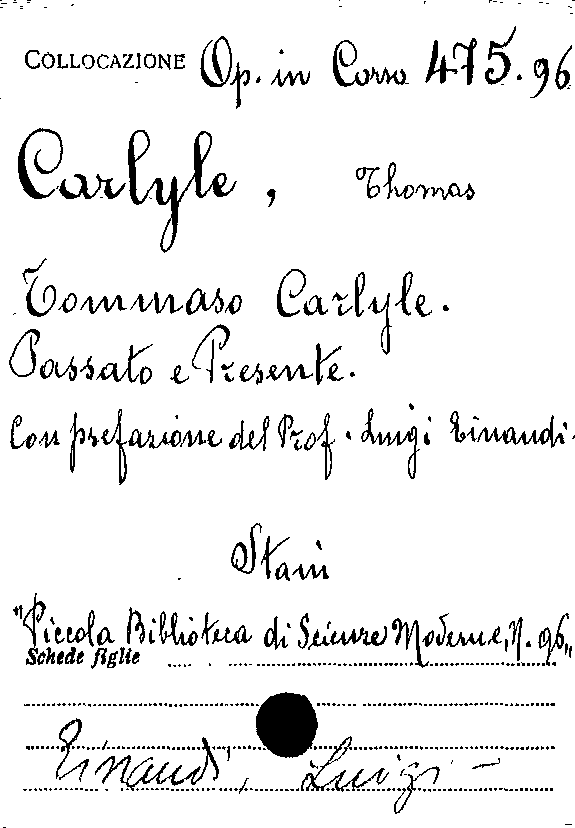 COLLOCAZIONE Op. in Corso 475.96
Carlyle, Thomas
Tommaso Carlyle.
Passato e Presente.
Con prefazione del Prof. Luigi Einaudi.
Sta in
"Piccola Biblioteca di Scienze Moderne, N. 96„
Schede figlie
Einaudi, Luigi -